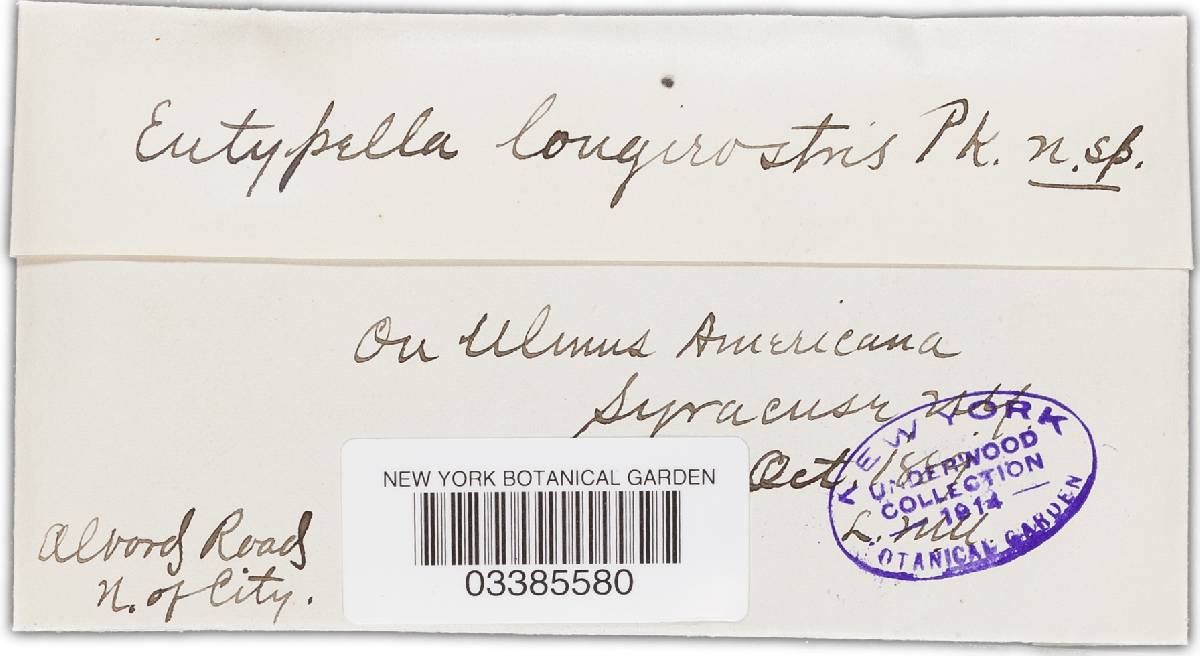 Eutypella longirostris Pk. n. sp.
On Ulmus Americana
Syracuse N.Y.
Oct.
L. M. U.
Alvord Road
N. of City.
NEW YORK BOTANICAL GARDEN
03385580
NEW YORK
UNDERWOOD
COLLECTION
1914
BOTANICAL GARDEN